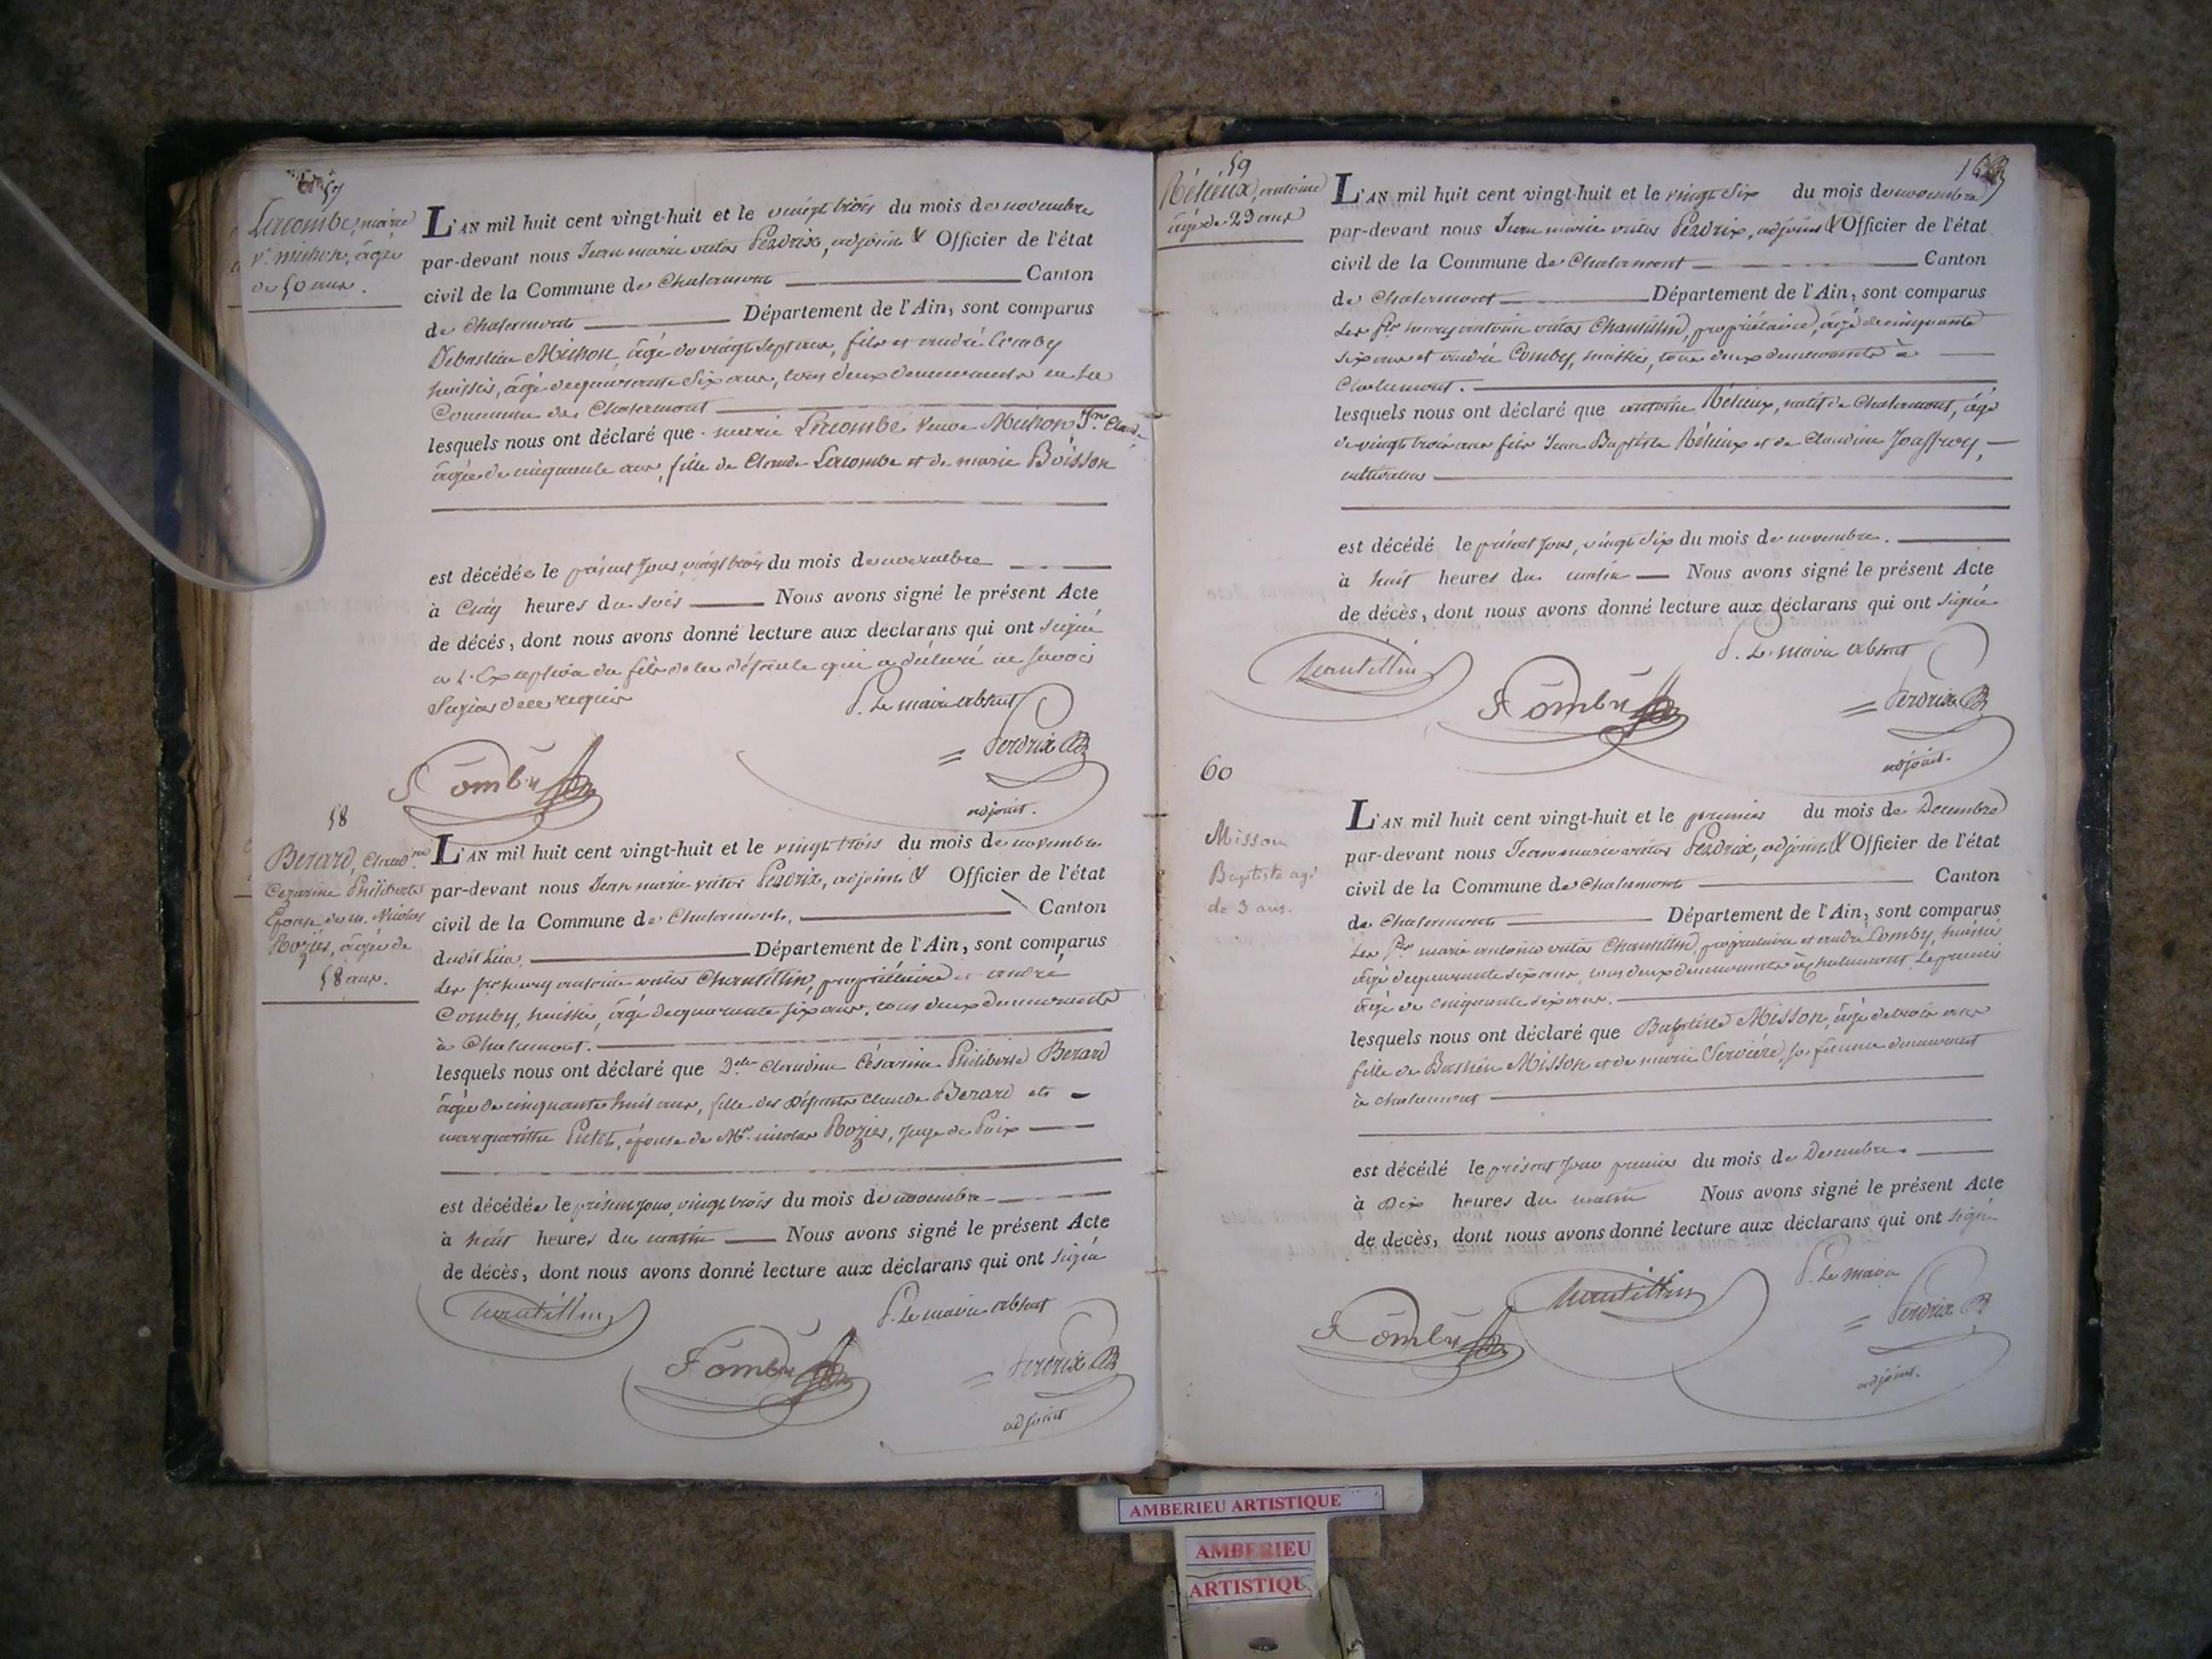 57
Lacombe, marie
Ve. michon, âgée
de 50 ans.
L'AN mil huit cent vingt-huit et le vingt trois du mois de novembre
par-devant nous Jean marie victor Perdrix, adjoint & Officier de l'état
civil de la Commune de Chalamont Canton
de Chalamont Département de l'Ain, sont comparus
Sébastien Michon, âgé de vingt sept ans, fils et andré Comby
huissier, âgé de quarante six ans, tous deux demeurants en la
Commune de Chalamont
lesquels nous ont déclaré que marie Lacombe Veuve Michon Jn. Claude
âgée de cinquante ans, fille de Claude Lacombe et de marie Boisson
est décédée le présent jour, vingt trois du mois de novembre
à Cinq heures du soir Nous avons signé le présent Acte
de décés, dont nous avons donné lecture aux déclarans qui ont signé
à l'Exception du fils de la défunte qui a déclaré ne savoir
Signer de ce requis
P. Le maire absent
Comby
Perdrix
adjoint.
58
Berard, Claudne
Cezarine Philiberte
Epouse de m. Nicolas
Rozier, âgée de
58 ans.
L'AN mil huit cent vingt-huit et le vingt trois du mois de novembre
par-devant nous Jean marie victor Perdrix, adjoint & Officier de l'état
civil de la Commune de Chalamont, Canton
dudit lieu, Département de l'Ain, sont comparus
Les Srs henry antoine victor Chantillin, propriétaire et andré
Comby, huissier, âgé de quarante six ans, tous deux demeurants
à Chalamont.
lesquels nous ont déclaré que Delle Claudine Césarine Philiberte Berard
âgée de cinquante huit ans, fille des défunts Claude Berard et
marguerithe Putet, épouse de Mr. nicolas Rozier, Juge de Paix
est décédée le présent jour, vingt trois du mois de novembre
à huit heures du matin Nous avons signé le présent Acte
de décès, dont nous avons donné lecture aux déclarans qui ont signé
Chantillin
P. Le maire absent
Comby
Perdrix
adjoint
59
Rétieux, antoine
âgé de 23 ans
L'AN mil huit cent vingt-huit et le vingt Six du mois de novembre
par-devant nous Jean marie victor Perdrix, adjoint & Officier de l'état
civil de la Commune de Chalamont Canton
de Chalamont Département de l'Ain, sont comparus
Les Srs henry antoine victor Chantillin, propriétaire, âgé de cinquante
six ans et andré Comby, huissier, tous deux demeurants à
Chalamont.
lesquels nous ont déclaré que antoine Rétieux, natif de Chalamont, âgé
de vingt trois ans fils Jean Baptiste Rétieux et de Claudine Jouffroy,
cultivateur
est décédé le présent jour, vingt Six du mois de novembre.
à huit heures du matin Nous avons signé le présent Acte
de décès, dont nous avons donné lecture aux déclarans qui ont signé
P. Le maire absent
Chantillin
Comby
Perdrix
adjoint.
60
Misson
Baptiste agé
de 3 ans.
L'AN mil huit cent vingt-huit et le premier du mois de Decembre
par-devant nous Jean marie victor Perdrix, adjoint & Officier de l'état
civil de la Commune de Chalamont Canton
de Chalamont Département de l'Ain, sont comparus
Les Srs marie antoine victor Chantillin, propriétaire et andré Comby, huissier
âgé de quarante six ans, tous deux demeurants à Chalamont, Le premier
âgé de cinquante six ans.
lesquels nous ont déclaré que Baptiste Misson, âgé de trois ans
fille de Bastien Misson et de marie Servière, sa femme demeurant
à chalamont
est décédé le présent jour premier du mois de Decembre.
à Dix heures du matin Nous avons signé le présent Acte
de decès, dont nous avons donné lecture aux déclarans qui ont signé
P. Le maire
Chantillin
Comby
Perdrix
adjoint.
AMBERIEU ARTISTIQUE
AMBERIEU
ARTISTIQU